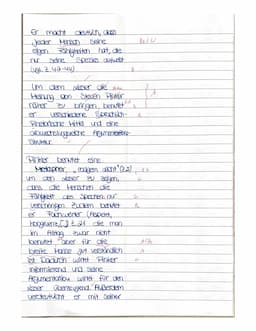 Er macht deutlich, dass
jeder Mensch seine
eigen Fähigkeiten hat, die
nur seine Spezies ausweist
(vgl. Z. 43-44).
Um dem Leser die
Meinung von Steven Pinker
näher zu bringen, benutzt
er verschiedene sprachlich-
rhetorische Mittel und eine
abwechslungsreiche Argumentations-
struktur.
Pinker benutzt eine
Metapher
um den Leser zu zeigen,
dass die Menschen die
Fähigkeit des Sprechen nur
Zudem benutzt
er Fachwörter (Aspekt,
Kongruenz, [...] Z. 21 die man
im Alltag zwar nicht
benutzt aber für die
breite Masse gut verständlich
ist. Dadurch wirkt Pinker
informierend und seine
Argumentation wirkt für den
Leser überzeugend. Außerdem
verdeutlicht er mit seiner